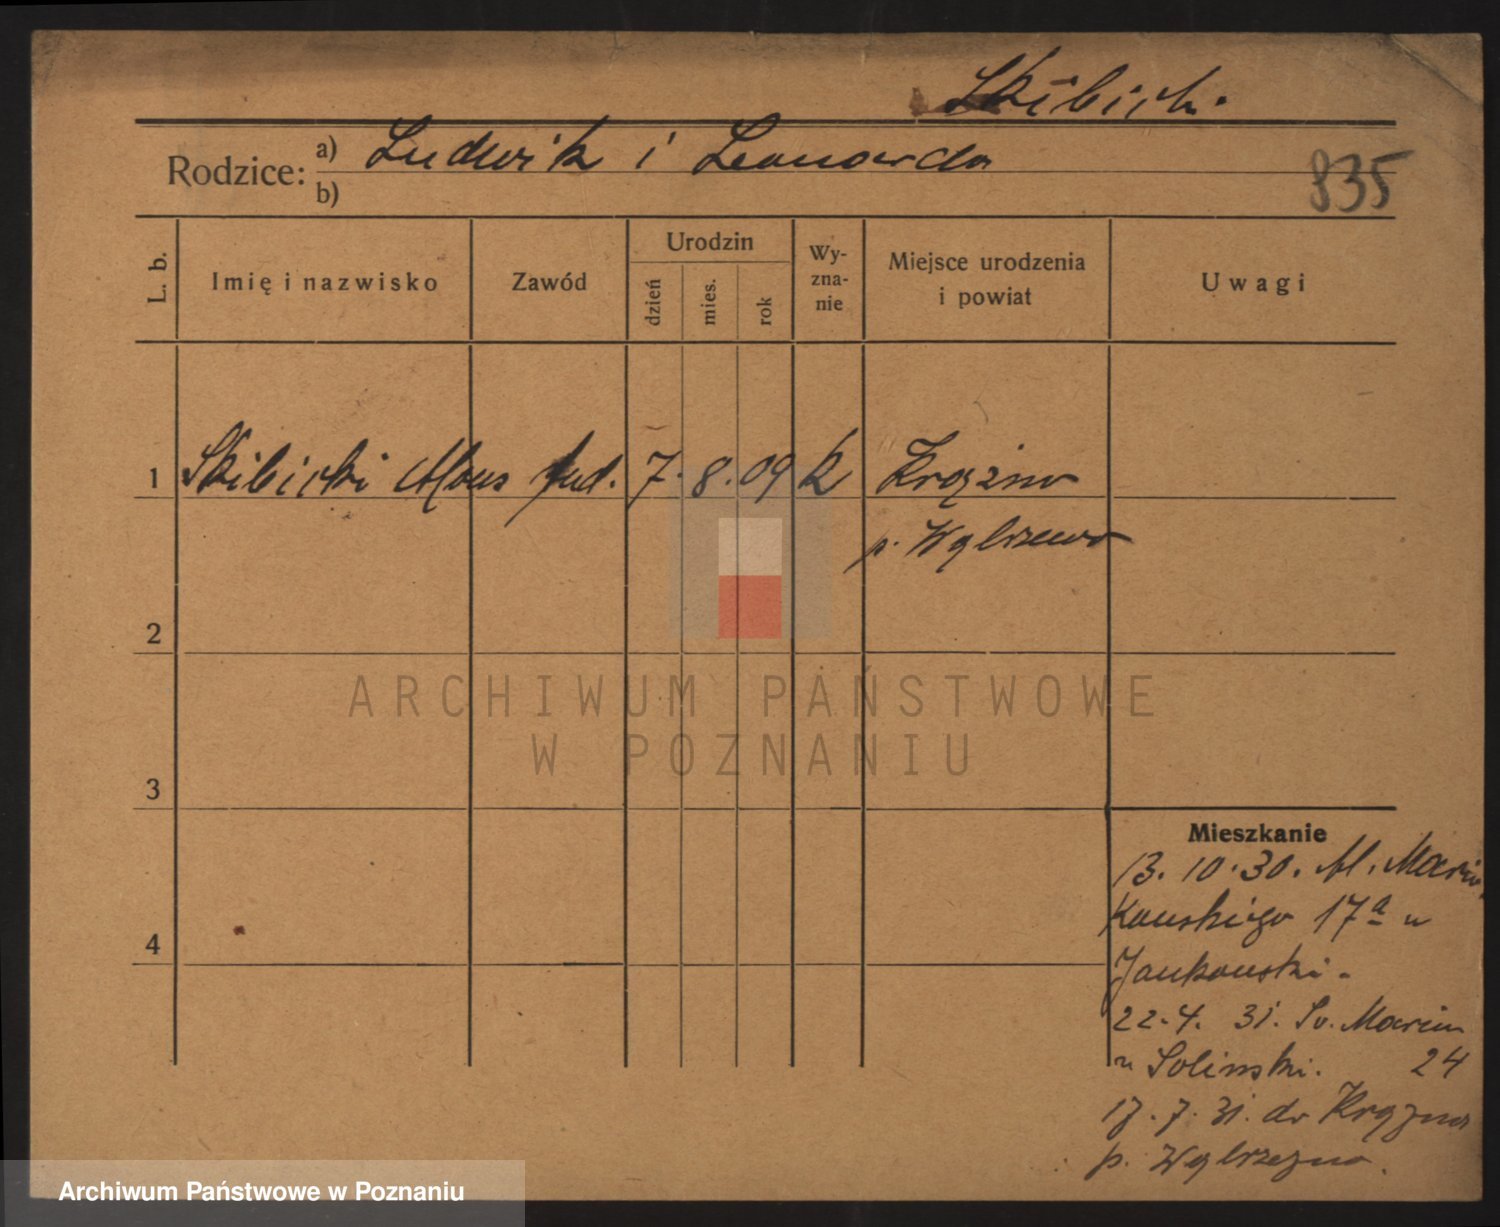 Skibicki.
Rodzice: a) Ludwik i Leonarda
b)
835
L. b.
Imię i nazwisko
Zawód
Urodzin
dzień
mies.
rok
Wy-
zna-
nie
Miejsce urodzenia
i powiat
Uwagi
1 Skibicki Alous stud. 7. 8. 09 k
p. Wąbrzeno
2
3
4
Mieszkanie
13. 10. 30. Al. Marcin
kowskiego 17a u
Jankowski.
22. 4. 31. Św. Marcin
u Soliński. 24
17. 7. 31. do
p. Wąbrzezno.
ARCHIWUM PAŃSTWOWE
W POZNANIU
Archiwum Państwowe w Poznaniu